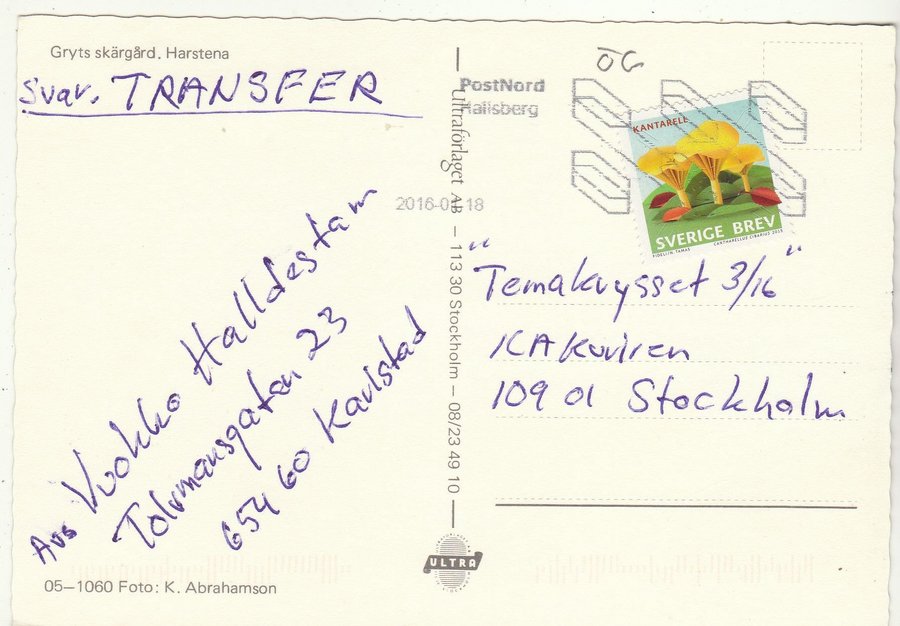 Gryts skärgård. Harstena
Svar. TRANSFER
Avs Vuokko Halldestam
Tolvmansgatan 23
654 60 Karlstad
05–1060 Foto: K. Abrahamson
Ultraförlaget AB – 113 30 Stockholm – 08/23 49 10
ULTRA
ÖG
PostNord
Hallsberg
2016-0 18
KANTARELL
SVERIGE BREV
CANTHARELLUS CIBARIUS 2015
"Temakrysset 3/16"
ICAKuriren
109 01 Stockholm